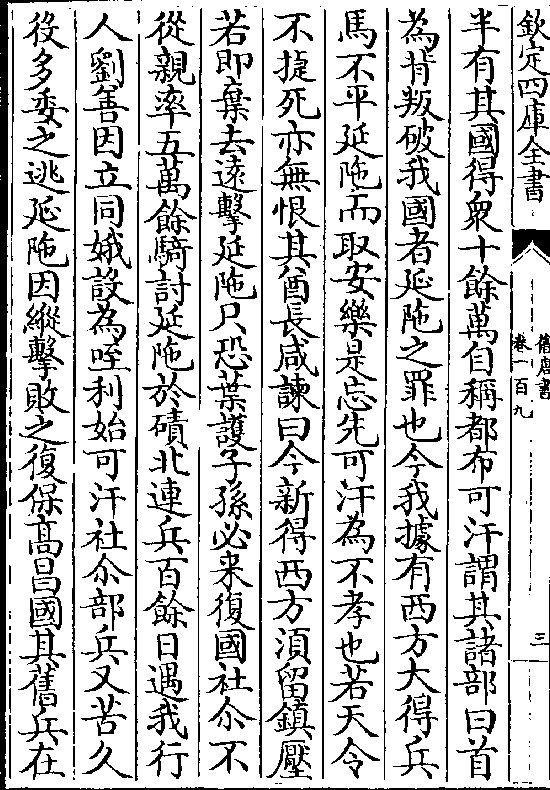 欽定四庫全書
舊唐書
卷一百九
三
半有其國得衆十餘萬自稱都布可汗謂其諸部曰首
為背叛破我國者延陁之罪也今我據有西方大得兵
馬不平延陁而取安樂是忘先可汗為不孝也若天令
不捷死亦無恨其酋長咸諫曰今新得西方須留鎮壓
若即棄去逺擊延陁只恐葉護子孫必来復國社尒不
從親率五萬餘騎討延陁於磧北連兵百餘日遇我行
人劉善因立同娥設為咥利始可汗社尒部兵又苦久
役多委之逃延陁因縱擊敗之復保髙昌國其舊兵在